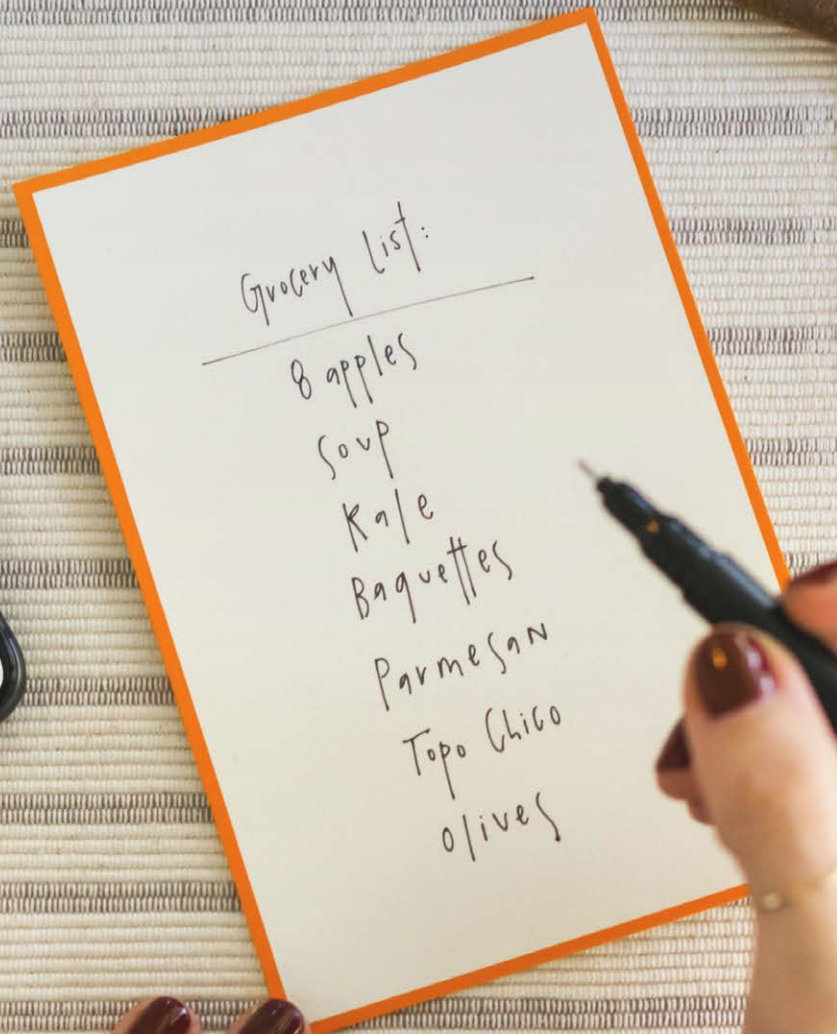 Grocery list:
8 apples
Soup
Kale
Baguettes
Parmesan
Topo Chico
Olives